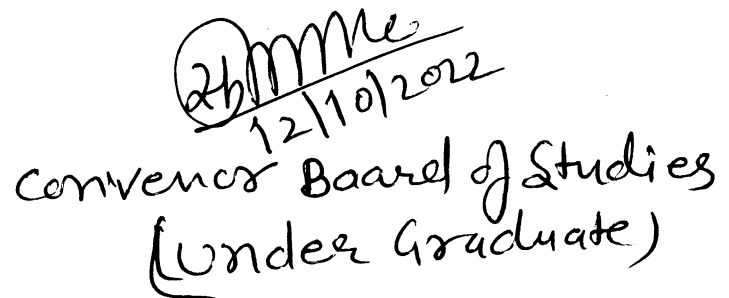 12/10/2022
Convenor Board of Studies
(Under Graduate)